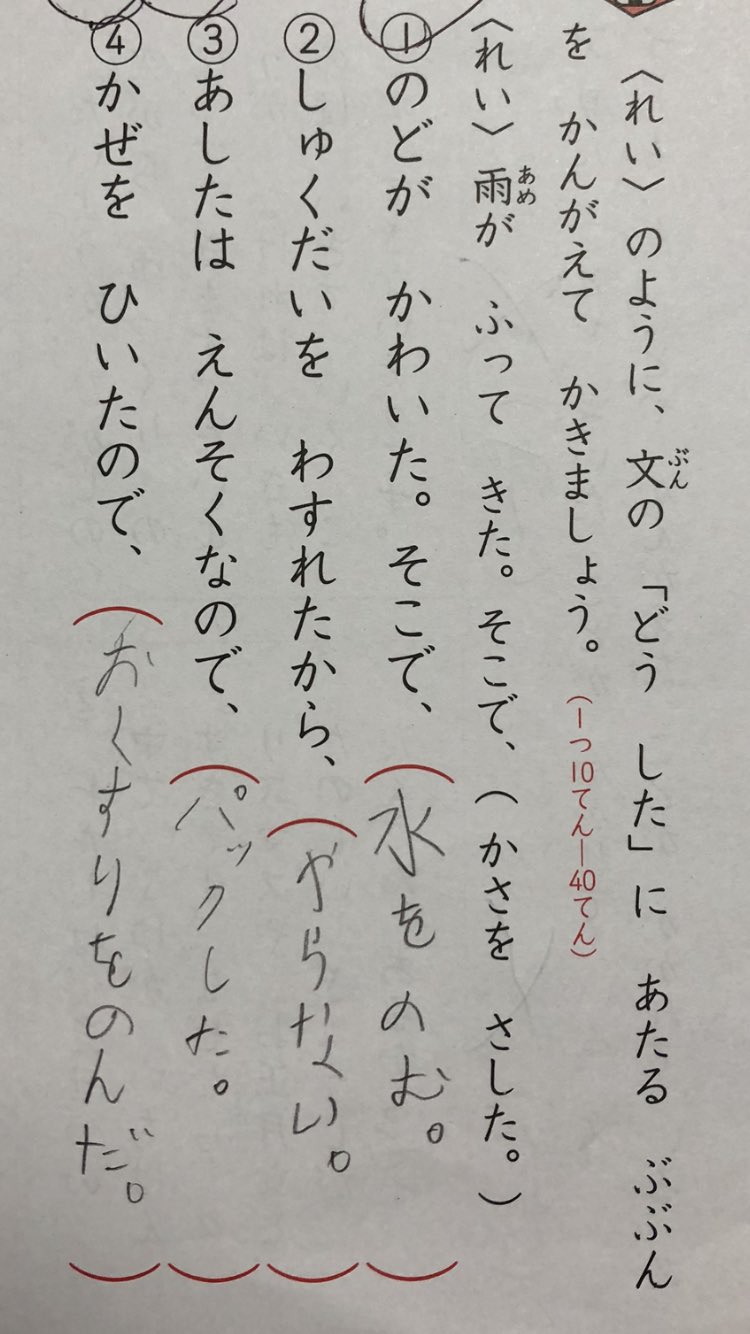 〈れい〉のように、文の 「どう した」に あたる ぶぶん
を かんがえて かきましょう。(一つ10てん―40てん)
〈れい〉 雨が ふって きた。そこで、(かさを さした。)
①のどが かわいた。そこで、(水をのむ。)
②しゅくだいを わすれたから、(やらない。)
③あしたは えんそくなので、(パックした。)
④かぜを ひいたので、(おくすりをのんだ。)